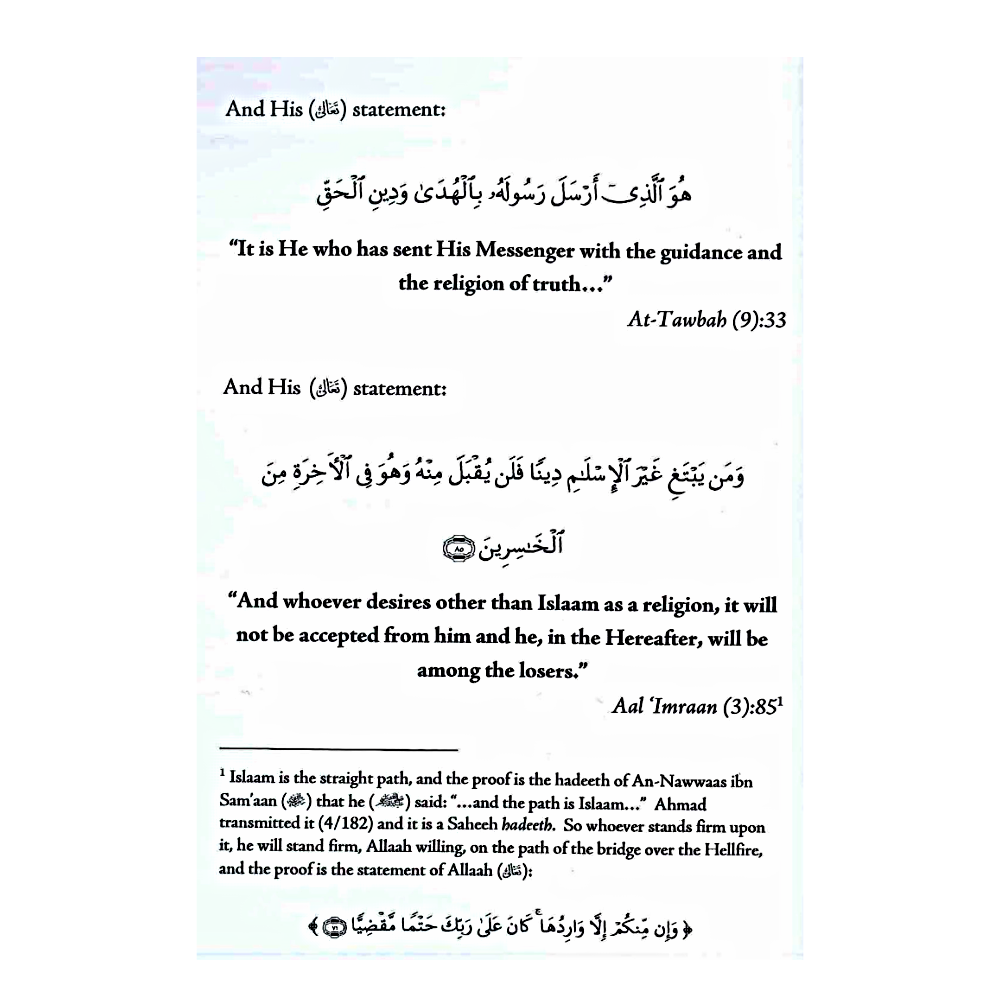 And His (تعالى) statement:
هُوَ ٱلَّذِىٓ أَرْسَلَ رَسُولَهُۥ بِٱلْهُدَىٰ وَدِينِ ٱلْحَقِّ
“It is He who has sent His Messenger with the guidance and
the religion of truth...”
At-Tawbah (9):33
And His (تعالى) statement:
وَمَن يَبْتَغِ غَيْرَ ٱلْإِسْلَٰمِ دِينًا فَلَن يُقْبَلَ مِنْهُ وَهُوَ فِى ٱلْأَخِرَةِ مِنَ
ٱلْخَٰسِرِينَ ٨٥
“And whoever desires other than Islaam as a religion, it will
not be accepted from him and he, in the Hereafter, will be
among the losers.”
Aal ‘Imraan (3):85¹
¹ Islaam is the straight path, and the proof is the hadeeth of An-Nawwaas ibn
Sam'aan () that he () said: “...and the path is Islaam...” Ahmad
transmitted it (4/182) and it is a Saheeh hadeeth. So whoever stands firm upon
it, he will stand firm, Allaah willing, on the path of the bridge over the Hellfire,
and the proof is the statement of Allaah (تعالى):
﴿ وَإِن مِّنكُمْ إِلَّا وَارِدُهَا ۚ كَانَ عَلَىٰ رَبِّكَ حَتْمًا مَّقْضِيًّا ٧١ ﴾